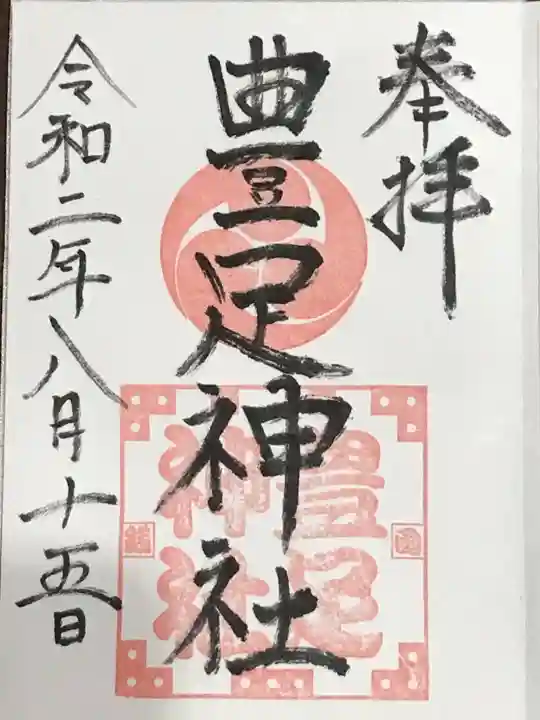 奉拝
豊足神社
豊足
神社
令和二年八月十五日